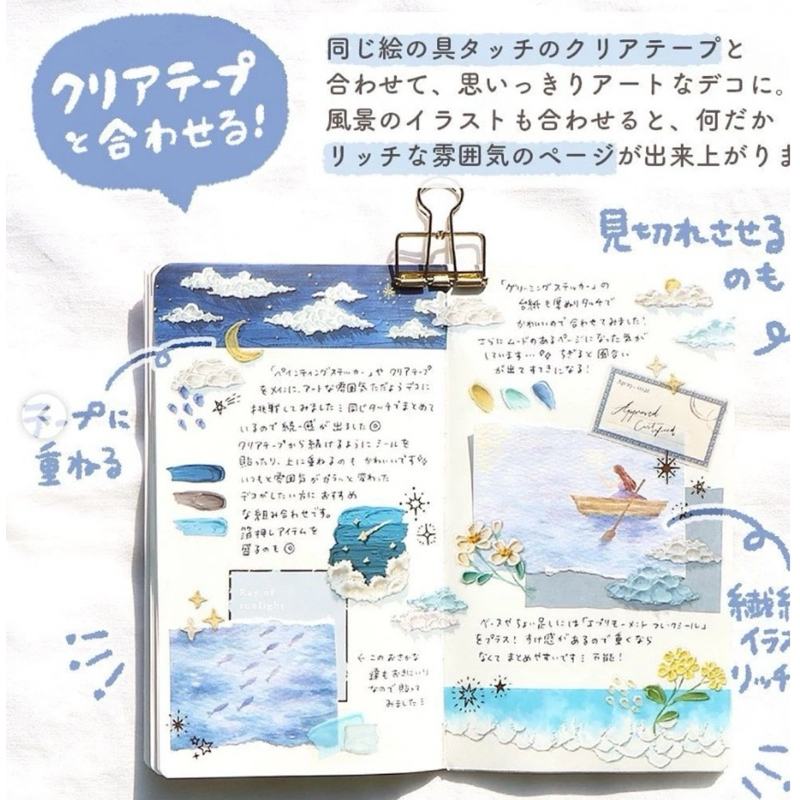 クリアテープ
と合わせる!
同じ絵の具タッチのクリアテープと
合わせて、思いっきりアートなデコに。
風景のイラストも合わせると、何だか
リッチな雰囲気のページが出来上がりま
見切れさせる
のも
テープに
重ねる
「ペインティングステッカー」や クリアテープ
をメインに、アートな雰囲気ただようデコに
挑戦してみました 同じタッチでまとめて
いるので統一感が出ました
クリアテープから続けるようにシールを
貼ったり、上に重ねるのも かわいいです
いつもと雰囲気がガラッと変わった
デコがしたい方に おすすめ
な組み合わせです。
箔押しアイテムを
盛るのも
Ray of
sunlight
← このおさかな
達もお気にいり
なので貼って
みました
「グリーミングステッカー」の
台紙も厚ぬりタッチで
かわいいので合わせてみました!
さらにムードのあるページになった気が
しています… ちぎると風合い
が出てすてきになる!
Approved
Certified
ベースやちょい足しには「エブリモーメント フレークシール」
をプラス! すけ感があるので重くなら
なくて まとめやすいです 万能!
繊細
イラス
リッチ